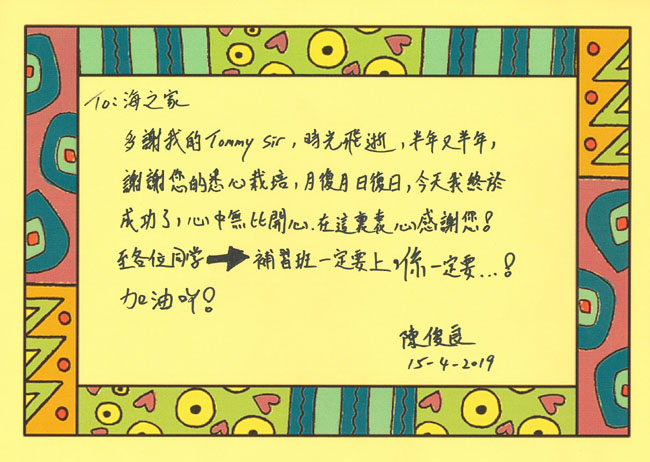 To: 海之家
多謝我的Tommy Sir，時光飛逝，半年又半年，
謝謝您的悉心栽培，月復月日復日，今天我終於
成功了，心中無比開心.在這裏衷心感謝您！
至各位同学➡補習班一定要上，你一定要...！
加油吖！
陳俊良
15-4-2019